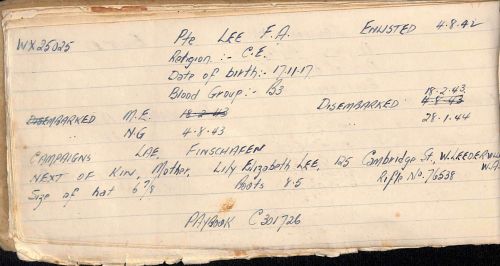 WX25025 Pte LEE F.A. ENLISTED 4.8.42
Religion :- C.E.
Date of birth:- 17.11.17
Blood Group:- B3
DISEMBARKED M.E. 18.2.43 DISEMBARKED 18.2.43
4.8.43
NG 4.8.43 28.1.44
CAMPAIGNS LAE FINSCHAFEN
NEXT OF KIN, Mother, Lily Elizabeth LEE, 125 Cambridge St, W. LEEDERVILLE W.A.
Size of hat 6 7/8 Boots 8.5 Rifle No. 76538
PAYBOOK C301726